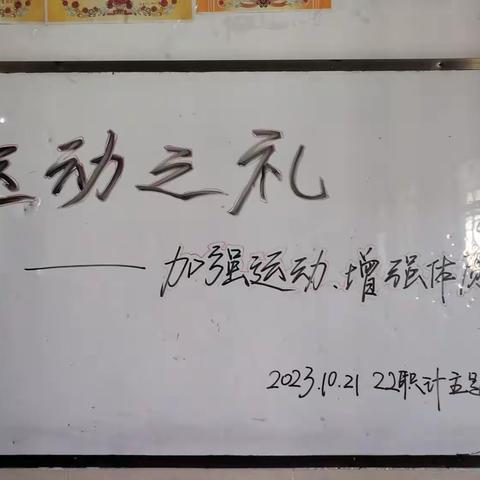 运动之礼
——加强运动、增强体质
2023.10.21 22职计主